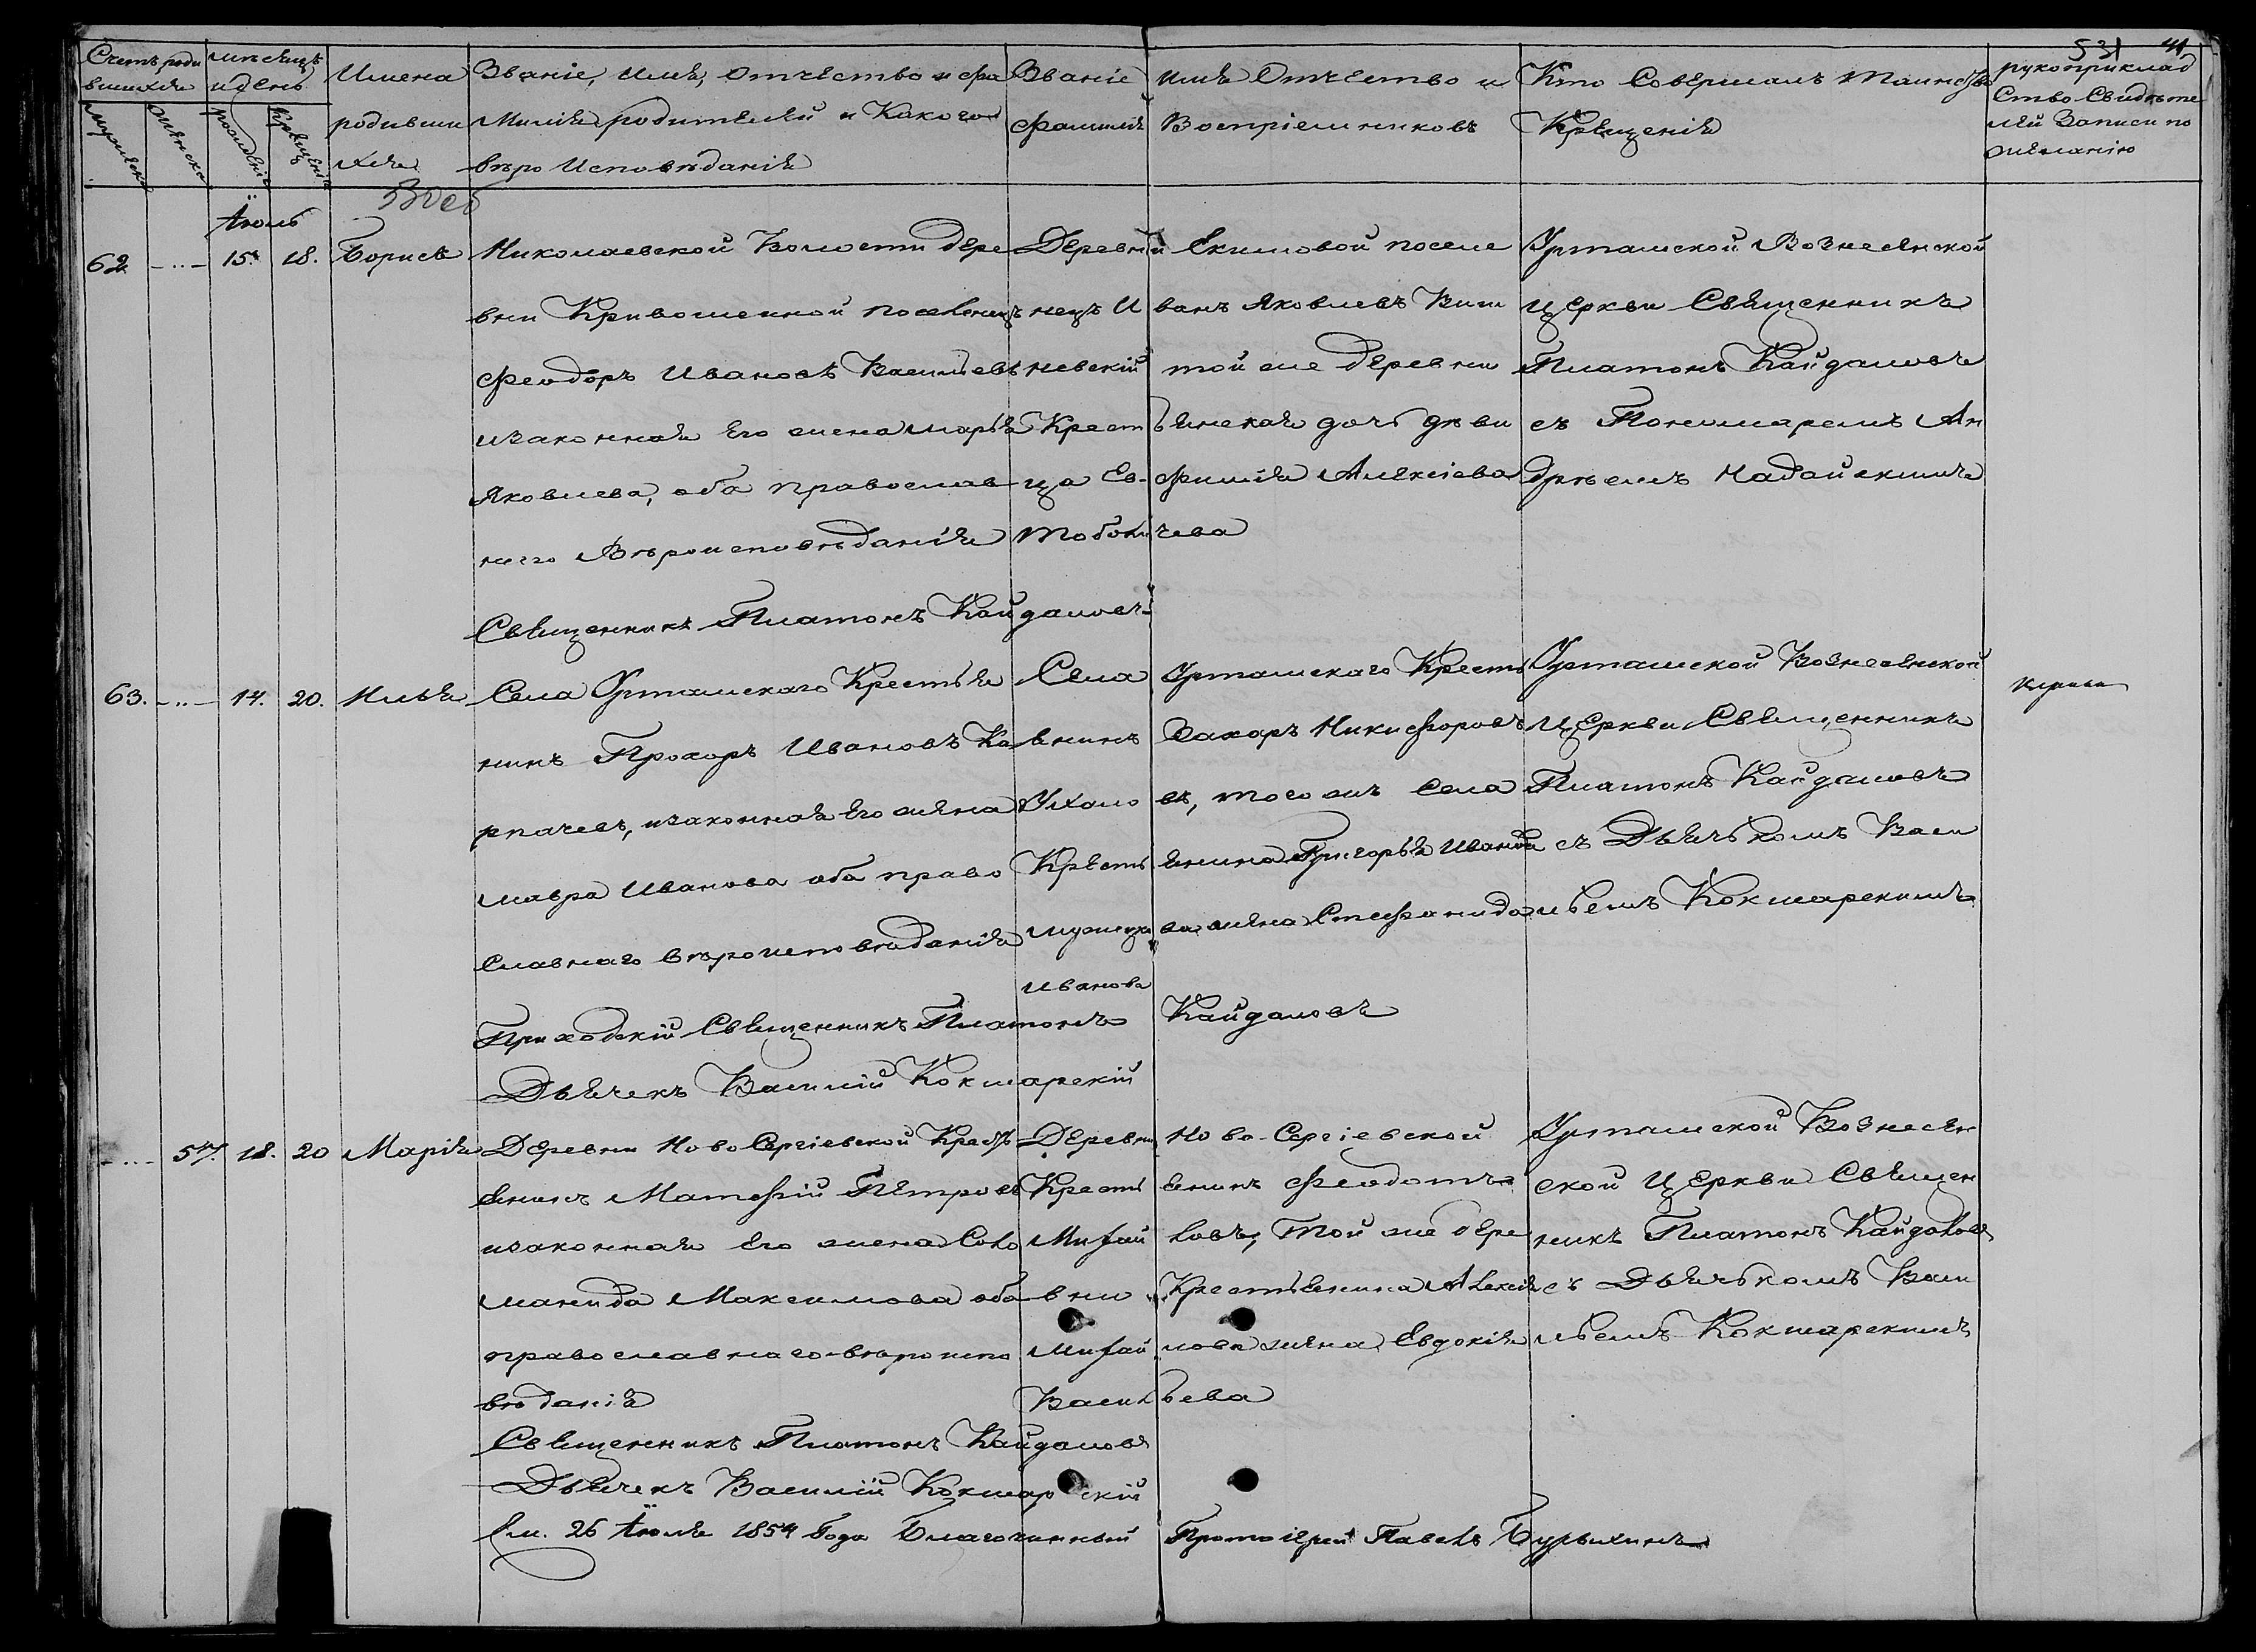 531 41
Счетъ роди вшихся
мѣсяцъ и день
Имена родивши хся
Званіе, имя, отчество и фа милія родителей и какого вѣро исповѣданія
Званіе имя отчество и фамилія воспріемниковъ
Кто совершалъ таинство крещенія
рукоприклад ство свидѣте лей записи по желанію
мужеска
женска
рожденія
крещенія
Іюль
62. -..- 15. 18. Борисъ
Николаевской Волости дере
вни Кривошеиной поселенецъ
Феодоръ Ивановъ Васильевъ
изаконная его жена Марья
Яковлева, оба православ
наго вѣроисповѣданія
Деревни Екимовой поселе
нецъ Иванъ Яковлевъ Виш
невскій той же деревни
Крестьянская дочь дѣви
ца Евфимія Алексіева
Урташской Вознесенской
церкви Священникъ
Платонъ Кайдаловъ
съ Пономаремъ Ан
дрѣемъ
Священникъ Платонъ Кайдаловъ
63. -..- 14. 20. Илья
Села Урташскаго Крестья
нинъ Прохоръ Ивановъ Ка
рпачевъ, изаконная его жена
Мавра Иванова оба право
славнаго вѣроисповѣданія
Села Урташскаго Кресть
янинъ Захаръ Никифоровъ
въ, того жъ села
Крестьянина Григорья Иванова
жена Стефанида
Иванова
Урташской Вознесенской
Церкви Священникъ
Платонъ Кайдаловъ
съ Дьячькомъ Васи
льемъ Кокшарскимъ
Приходскій Священникъ Платонъ Кайдаловъ
Дьячекъ Василій Кокшарскій
-...- 57. 18. 20 Марія
Деревни Ново Сергіевской Кресть
янинъ Матфій Петровъ
изаконная его жена Соло
манида Максимова оба
православнаго вѣроиспо
вѣданія
Деревни Ново-Сергіевской
Крестьянинъ Феодотъ
Михайловъ, той же дере
вни Крестьянина Алексія
Михайлова жена Евдокія
Васильева
Урташской Вознесен
ской Церкви Священ
никъ Платонъ Кайдаловъ
съ Дьячькомъ Васи
льемъ Кокшарскимъ
Священникъ Платонъ Кайдаловъ
Дьячекъ Василій Кокшарскій
26 Іюля 1854 Года Благочинный Протоіерей Павелъ